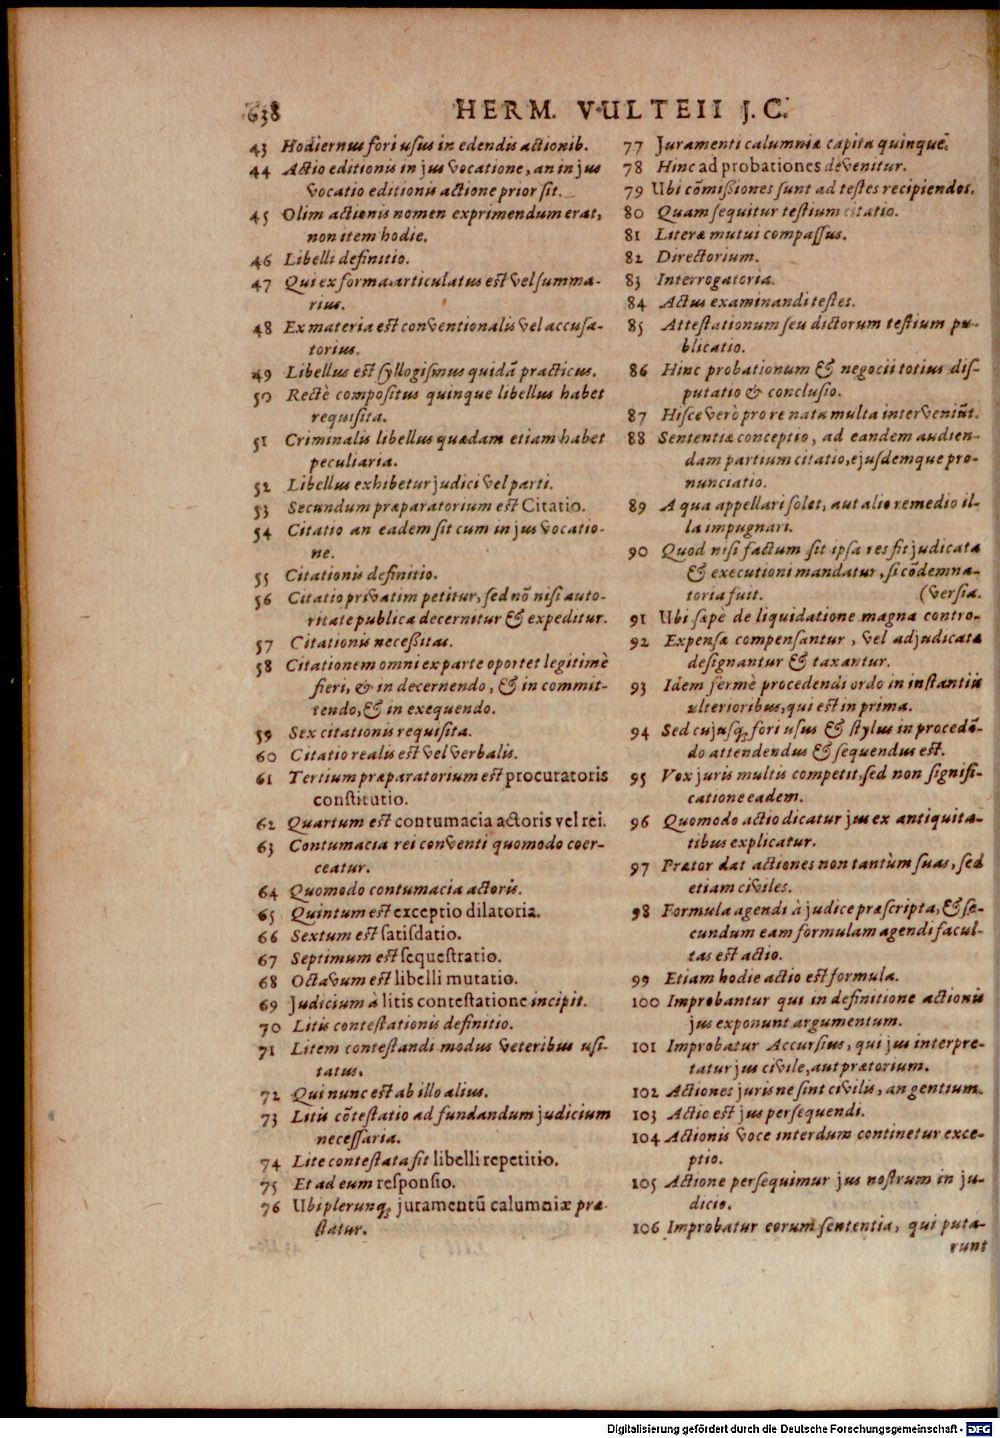 638
HERM. VULTEII J.C.
43 Hodiernus fori usus in edendis actionib.
44 Actio editionis in jus vocatione, an in jus
vocatio editionis actione prior sit.
45 Olim actionis nomen exprimendum erat,
non item hodie.
46 Libelli definitio.
47 Qui ex forma articulatus est vel summa-
rius.
48 Ex materia est conventionalis vel accusa-
torius.
49 Libellus est syllogismus quidā practicus.
50 Rectè compositus quinque libellus habet
requisita.
51 Criminalis libellus quædam etiam habet
peculiaria.
52 Libellus exhibetur judici vel parti.
53 Secundum præparatorium est Citatio.
54 Citatio an eadem sit cum in jus vocatio-
ne.
55 Citationis definitio.
56 Citatio privatim petitur, sed nō nisi auto-
ritate publica decernitur & expeditur.
57 Citationis necessitas.
58 Citationem omni ex parte oportet legitimè
fieri, & in decernendo, & in commit-
tendo, & in exequendo.
59 Sex citationis requisita.
60 Citatio realis est vel verbalis.
61 Tertium præparatorium est procuratoris
constitutio.
62 Quartum est contumacia actoris vel rei.
63 Contumacia rei conventi quomodo coer-
ceatur.
64 Quomodo contumacia actoris.
65 Quintum est exceptio dilatoria.
66 Sextum est satisdatio.
67 Septimum est sequestratio.
68 Octavum est libelli mutatio.
69 Judicium à litis contestatione incipit.
70 Litis contestationis definitio.
71 Litem contestandi modus veteribus usi-
tatus.
72 Qui nunc est ab illo alius.
73 Litis cōtestatio ad fundandum judicium
necessaria.
74 Lite contestata fit libelli repetitio.
75 Et ad eum responsio.
76 Ubi plerunq; juramentū calumniæ præ-
statur.
77 Juramenti calumniæ capita quinque.
78 Hinc ad probationes devenitur.
79 Ubi cōmissiones sunt ad testes recipiendos.
80 Quam sequitur testium citatio.
81 Literæ mutui compassus.
82 Directorium.
83 Interrogatoria.
84 Actus examinandi testes.
85 Attestationum seu dictorum testium pu-
blicatio.
86 Hinc probationum & negocii totius dis-
putatio & conclusio.
87 Hisce verò pro re nata multa interveniūt.
88 Sententiæ conceptio, ad eandem audien-
dam partium citatio, ejusdemque pro-
nunciatio.
89 A qua appellari solet, aut alio remedio il-
la impugnari.
90 Quod nisi factum sit ipsa res fit judicata
& executioni mandatur, si cōdemna-
toria fuit. (versia.
91 Ubi sæpè de liquidatione magna contro-
92 Expensæ compensantur, vel adjudicatæ
designantur & taxantur.
93 Idem fermè procedendi ordo in instantiis
ulterioribus, qui est in prima.
94 Sed cujusq; fori usus & stylus in procedē-
do attendendus & sequendus est.
95 Vox juris multis competit, sed non signifi-
catione eadem.
96 Quomodo actio dicatur jus ex antiquita-
tibus explicatur.
97 Prætor dat actiones non tantùm suas, sed
etiam civiles.
98 Formula agendi à judice præscripta, & se-
cundum eam formulam agendi facul-
tas est actio.
99 Etiam hodie actio est formula.
100 Improbantur qui in definitione actionis
jus exponunt argumentum.
101 Improbatur Accursius, qui jus interpre-
tatur jus civile, aut prætorium.
102 Actiones jurisne sint civilis, an gentium.
103 Actio est jus persequendi.
104 Actionis voce interdum continetur exce-
ptio.
105 Actione persequimur jus nostrum in ju-
dicio.
106 Improbatur eorum sententia, qui puta-
runt
Digitalisierung gefördert durch die Deutsche Forschungsgemeinschaft - DFG